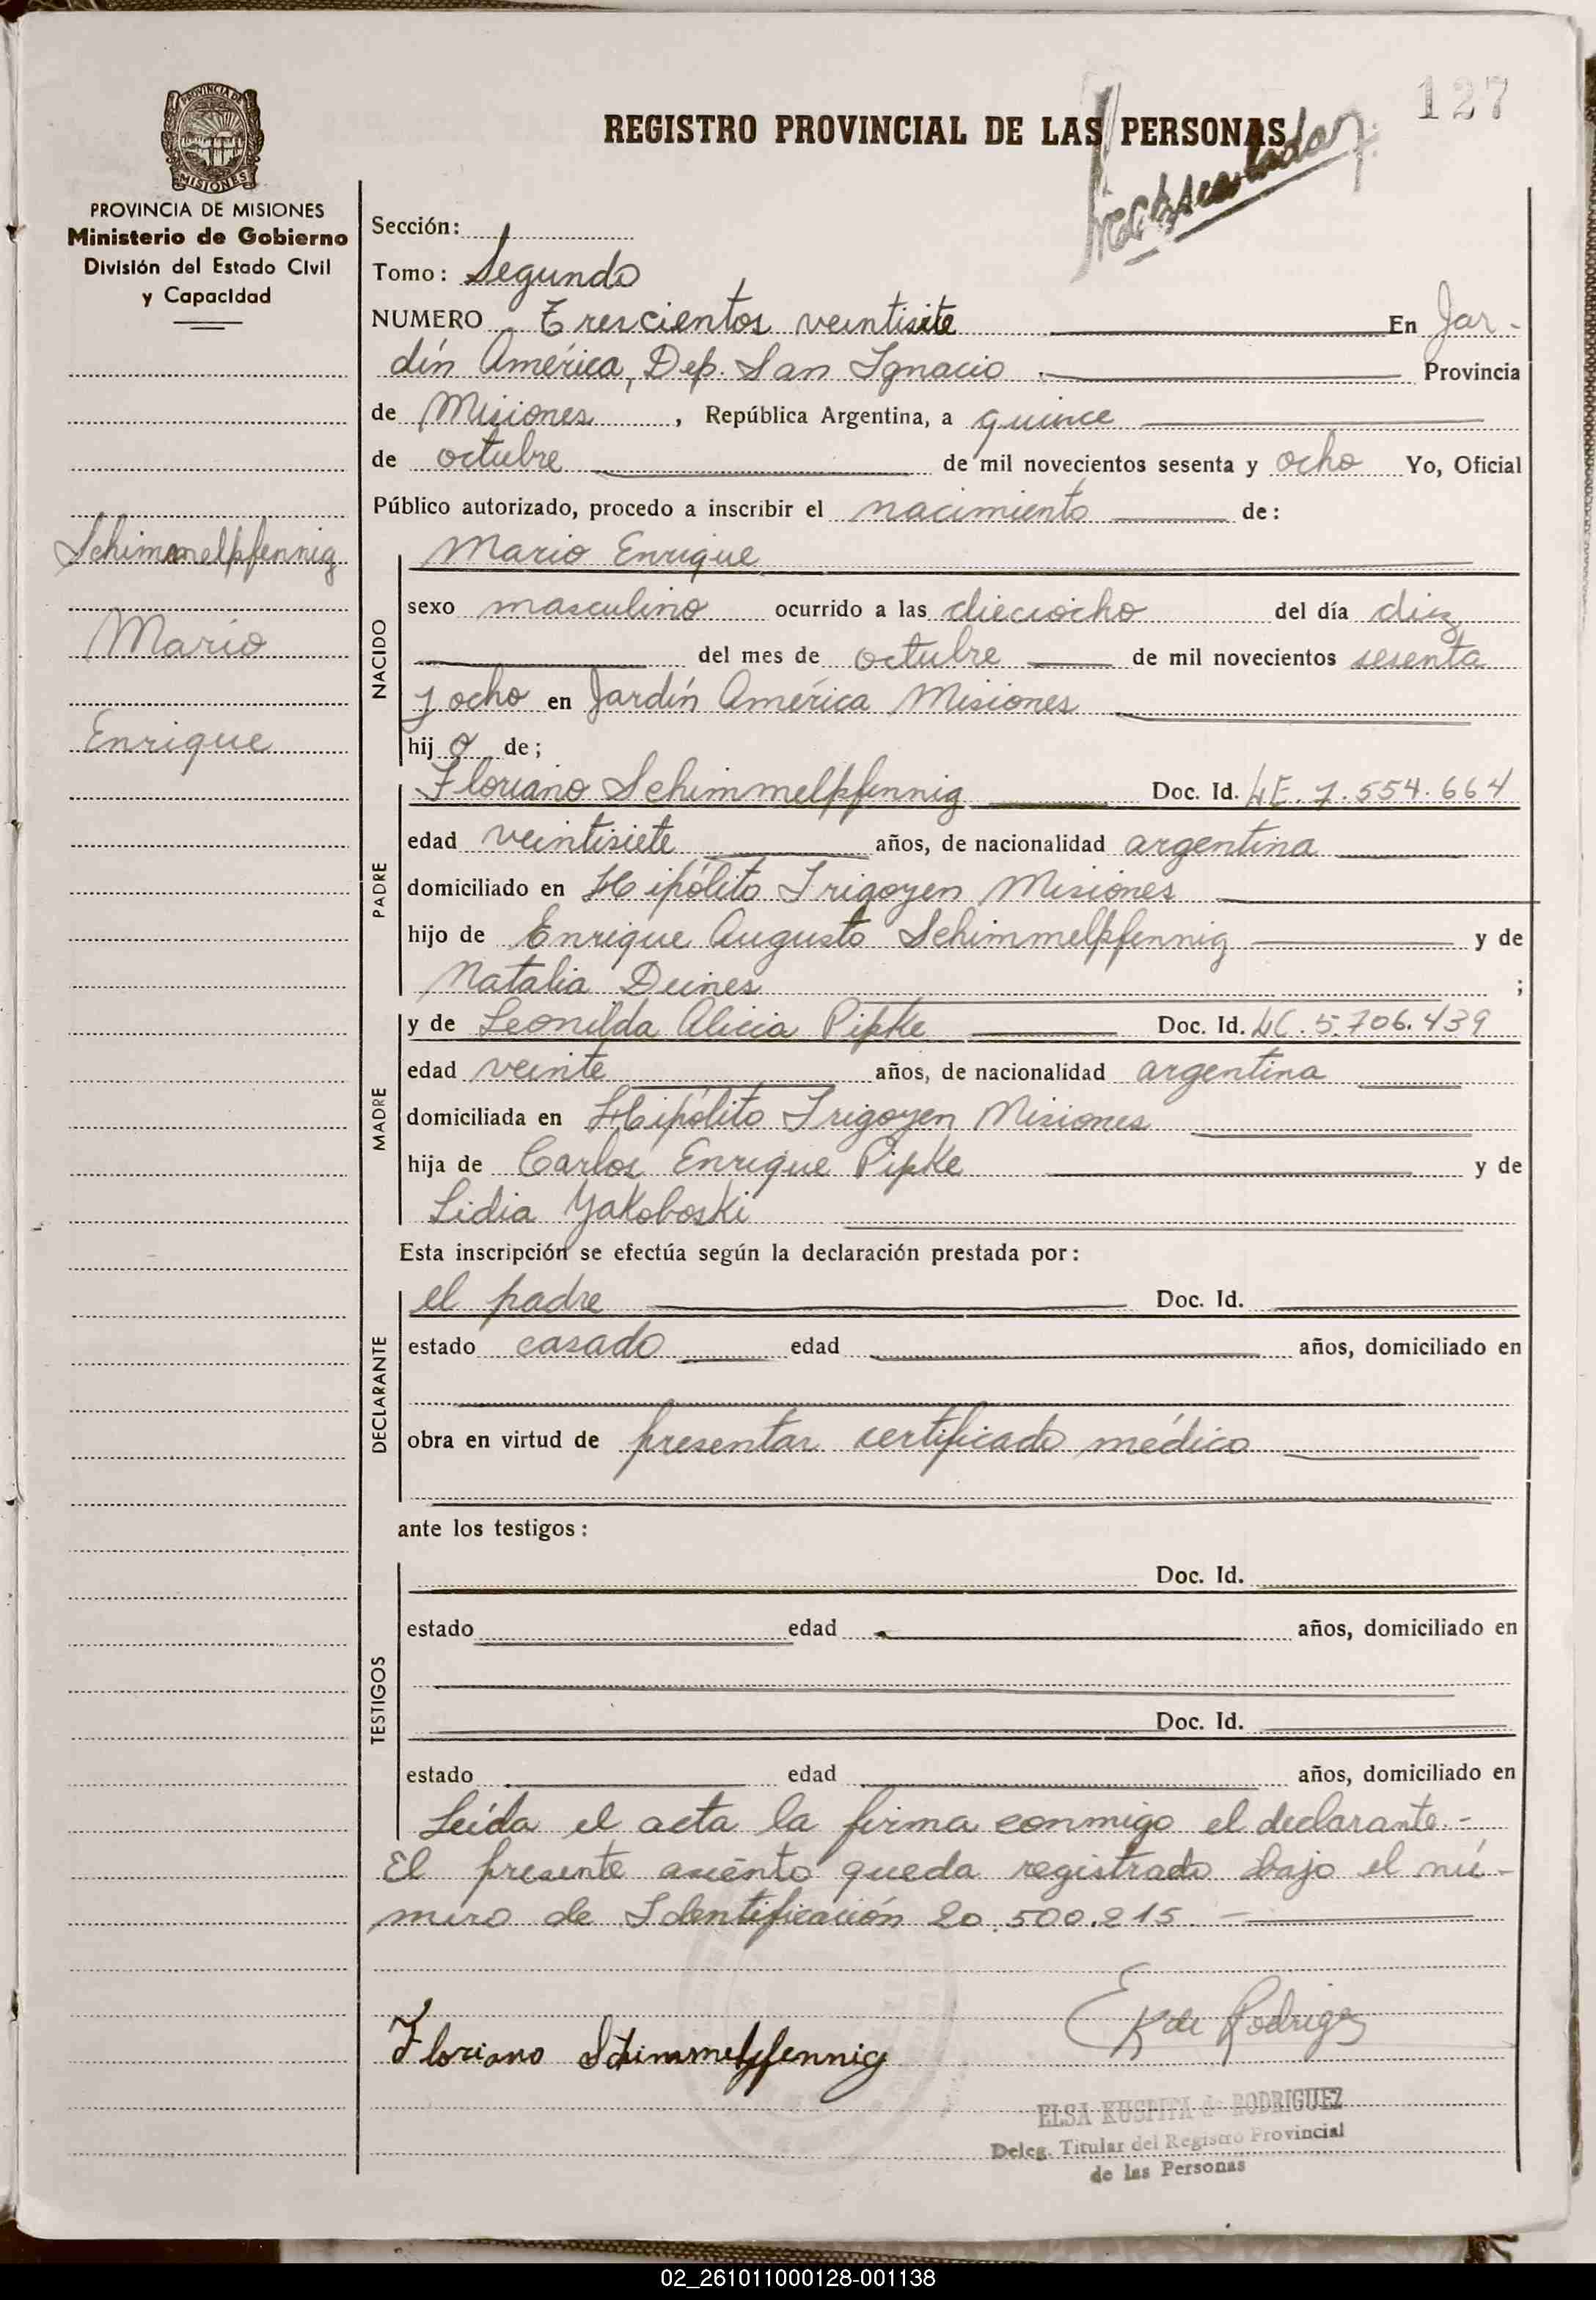 127
REGISTRO PROVINCIAL DE LAS PERSONAS
PROVINCIA DE MISIONES
PROVINCIA DE MISIONES
Ministerio de Gobierno
División del Estado Civil
y Capacidad
Schimmelpfennig
Mario
Enrique
Sección:
Tomo: Segundo
NUMERO Trescientos veintisiete En Jar-
dín América, Dep. San Ignacio. Provincia
de Misiones, República Argentina, a quince
de octubre de mil novecientos sesenta y ocho Yo, Oficial
Público autorizado, procedo a inscribir el nacimiento de:
NACIDO
Mario Enrique
sexo masculino ocurrido a las dieciocho del día diez
del mes de octubre de mil novecientos sesenta
y ocho en Jardín América Misiones
hijo de;
PADRE
Floriano Schimmelpfennig Doc. Id. LE. 7.554.664
edad veintisiete años, de nacionalidad argentina
domiciliado en Hipólito Irigoyen Misiones
hijo de Enrique Augusto Schimmelpfennig y de
Natalia Deines ;
MADRE
y de Leonilda Alicia Pipke Doc. Id. LC. 5.706.439
edad veinte años, de nacionalidad argentina
domiciliada en Hipólito Irigoyen Misiones
hija de Carlos Enrique Pipke y de
Lidia Yakoboski
Esta inscripción se efectúa según la declaración prestada por:
DECLARANTE
el padre Doc. Id.
estado casado edad años, domiciliado en
obra en virtud de presentar certificado médico
ante los testigos:
TESTIGOS
Doc. Id.
estado edad años, domiciliado en
Doc. Id.
estado edad años, domiciliado en
Leída el acta la firma conmigo el declarante.-
El presente asiento queda registrado bajo el nú-
mero de Identificación 20.500.215.-
Floriano Schimmelpfennig
E K de Rodriguez
ELSA KUSPITA de RODRIGUEZ
Deleg. Titular del Registro Provincial
de las Personas
02_261011000128-001138